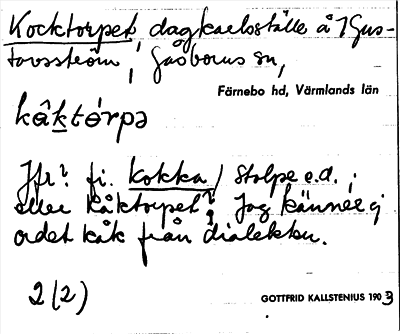 Kocktorpet, dagkarlsställe å Gus-
tavsström, Gåsborns sn,
Färnebo hd, Värmlands län
kåktórpə
Jfr? fi. kokka / stolpe e.d. ;
eller Kåktorpet? Jag känner ej
ordet kåk från dialekten.
2(2)
GOTTFRID KALLSTENIUS 1903